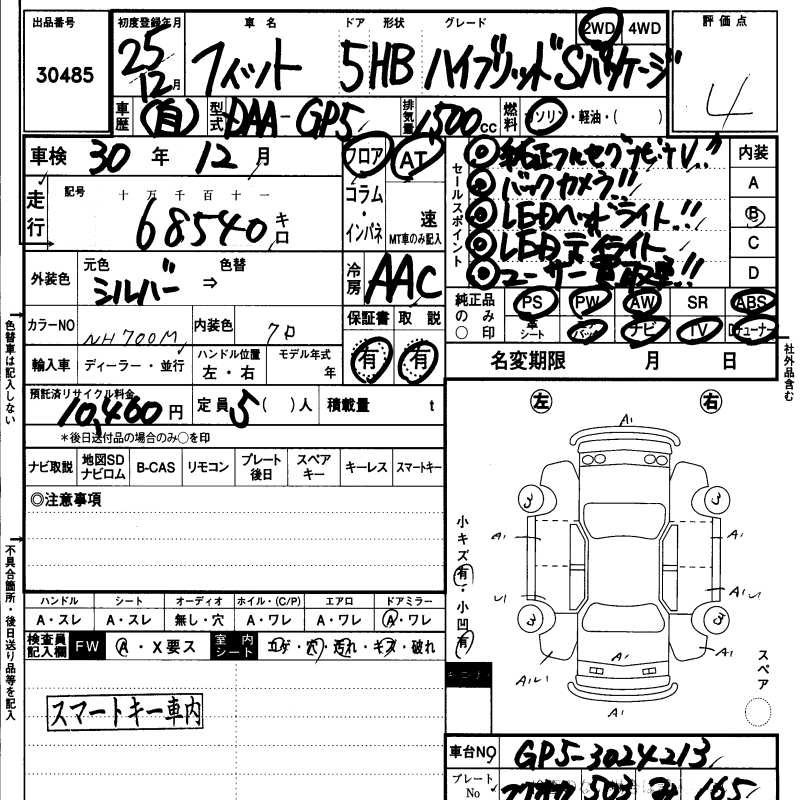 出品番号 初度登録年月 車名 ドア 形状 グレード 2WD 4WD 評価点
30485 25年 12月 フィット 5 HB ハイブリッドSパッケージ 4
車歴 (自) 型式 DAA-GP5 排気量 1500cc 燃料 ガソリン・軽油・( )
車検 30年 12月 フロア AT
セールスポイント
◎純正フルセグナビTV!!
◎バックカメラ!!
◎LEDヘッドライト!!
◎LEDデイライト
◎ユーザー買取車!!
内装
A
B
C
D
走行 記号 十万千百十一
68540キロ
コラム・インパネ
速
MT車のみ記入
外装色 元色 シルバー ⇒ 色替
冷房 AAC
純正品の○印 PS PW AW SR ABS
シート バック ナビ TV チューナー
カラーNO NH700M 内装色 クロ
保証書 有 取説 有
輸入車 ディーラー・並行 ハンドル位置 左・右 モデル年式 年
名変期限 月 日
預託済リサイクル料金 10,460円 定員 5( )人 積載量 t
*後日送付品の場合のみ○を印
ナビ取説 地図SDナビロム B-CAS リモコン プレート後日 スペアキー キーレス スマートキー
◎注意事項
色替車は記入しない
不具合箇所・後日送り品等を記入
社外品含む
左 右
A1
3 3
A1 A1
小キズ有・小凹有
U1 A1
3 3
A1U1 A1 A1
A1
スペア
ハンドル シート オーディオ ホイル・(C/P) エアロ ドアミラー
A・スレ A・スレ 無し・穴 A・ワレ A・ワレ A・ワレ
検査員記入欄 FW A・X要ス 室内シート コゲ・穴・汚れ・キズ・破れ
スマートキー車内
車台NO GP5-3024213
プレートNo フクオカ 503 165